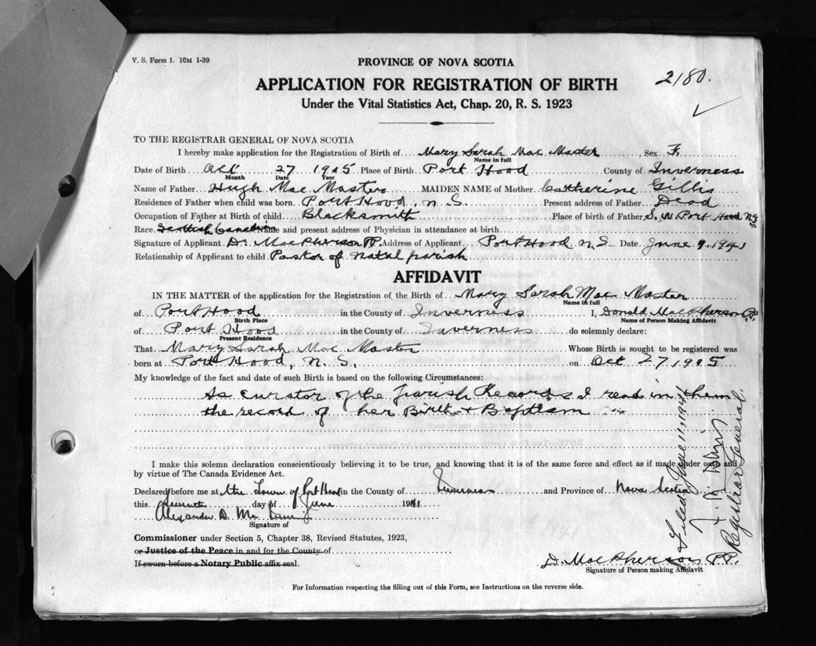 V. S. Form 1. 10M 1-39
PROVINCE OF NOVA SCOTIA
2180.
APPLICATION FOR REGISTRATION OF BIRTH
Under the Vital Statistics Act, Chap. 20, R. S. 1923
TO THE REGISTRAR GENERAL OF NOVA SCOTIA
I hereby make application for the Registration of Birth of Mary Sarah Mac Master Sex F.
Name in full
Date of Birth Oct 27 1905 Place of Birth Port Hood County of Inverness
Month Date Year
Name of Father Hugh Mac Master MAIDEN NAME of Mother Catherine Gillis
Residence of Father when child was born. Port Hood, N.S. Present address of Father Dead
Occupation of Father at Birth of child Blacksmith Place of birth of Father S. W. Port Hood N.S.
Race Scottish Canadian and present address of Physician in attendance at birth
Signature of Applicant D. MacPherson P.P. Address of Applicant Port Hood N.S. Date June 9. 1941
Relationship of Applicant to child Pastor of Natal parish
AFFIDAVIT
IN THE MATTER of the application for the Registration of the Birth of Mary Sarah Mac Master
Name in full
of Port Hood in the County of Inverness I, Donald MacPherson P.P.
Birth Place Name of Person Making Affidavit
of Port Hood in the County of Inverness do solemnly declare:
Present Residence
That Mary Sarah Mac Master Whose Birth is sought to be registered was
born at Port Hood, N.S. on Oct 27 1905
My knowledge of the fact and date of such Birth is based on the following Circumstances:
As curator of the Parish Records I read in them
the record of her Birth & Baptism
I make this solemn declaration conscientiously believing it to be true, and knowing that it is of the same force and effect as if made under oath and
by virtue of The Canada Evidence Act.
Declared before me at the Town of Port Hood in the County of Inverness and Province of Nova Scotia
this day of June 1941
Alexander D.
Signature of
Commissioner under Section 5, Chapter 38, Revised Statutes, 1923,
or Justice of the Peace in and for the County of
If sworn before a Notary Public affix seal.
D. MacPherson P.P.
Signature of Person making Affidavit
For Information respecting the filling out of this Form, see Instructions on the reverse side.
Filed June 11, 1941
Registrar General.